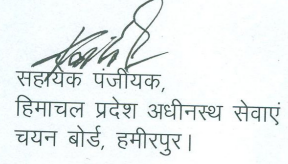 सहायक पंजीयक,
हिमाचल प्रदेश अधीनस्थ सेवाएं
चयन बोर्ड, हमीरपुर।